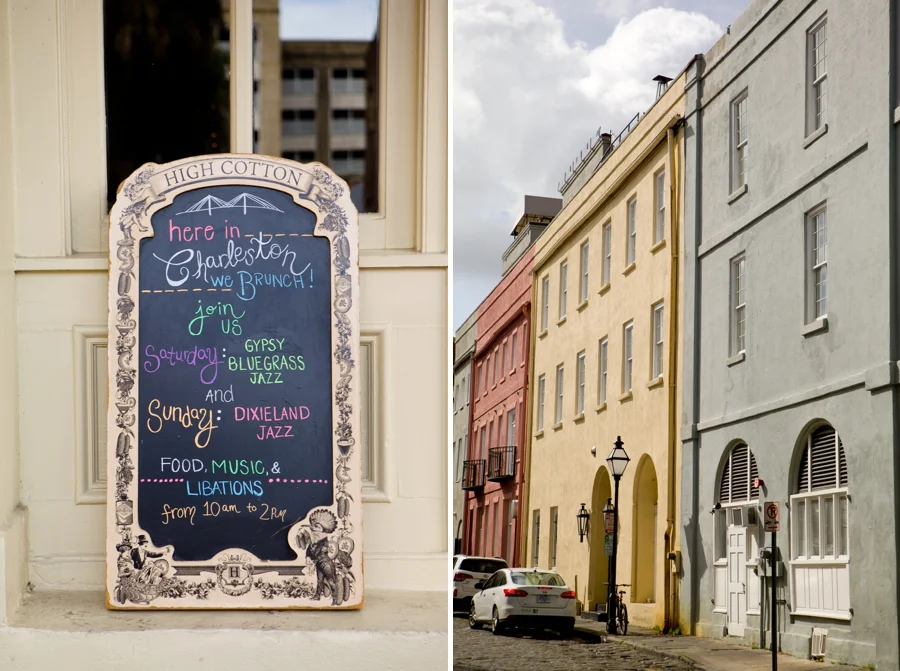 HIGH COTTON
here in
Charleston
we BRUNCH!
join
us
Saturday: GYPSY
BLUEGRASS
JAZZ
and
Sunday: DIXIELAND
JAZZ
FOOD, MUSIC, &
LIBATIONS
from 10am to 2pm
H